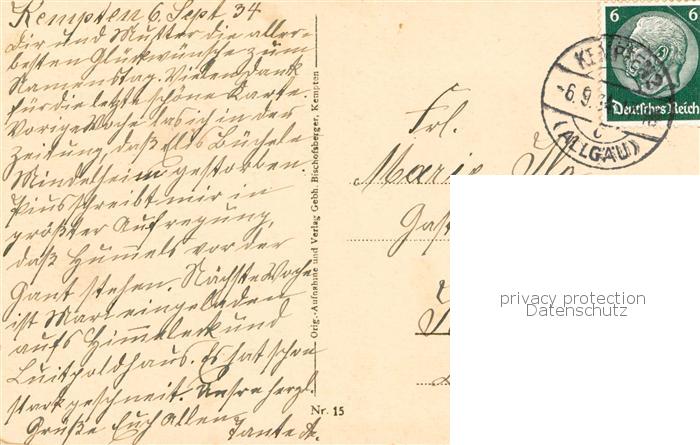 Kempten 6. Sept. 34
Dir und Mutter die aller-
besten Glückwünsche zum
Namenstag. Vielen Dank
für die letzte schöne Karte.
Vorige Woche las ich in der
Zeitung, daß Büchele
Mindelheim gestorben.
Pius schreibt mir in
größter Aufregung,
daß Hummels vor der
Gant stehen. Nächste Woche
ist Mari eingeladen
aufs Himmeleck und
Luitpoldhaus. Es hat schon
stark geschneit. Unsre herzl.
Grüße Euch Allen.
Tante A.
Orig.-Aufnahme und Verlag Gebh. Bischofsberger, Kempten
Nr. 15
6 6
Deutsches Reich
KEMPTEN
-6.9.34
c
(ALLGÄU)
Frl.
Marie
Gast
privacy protection
Datenschutz